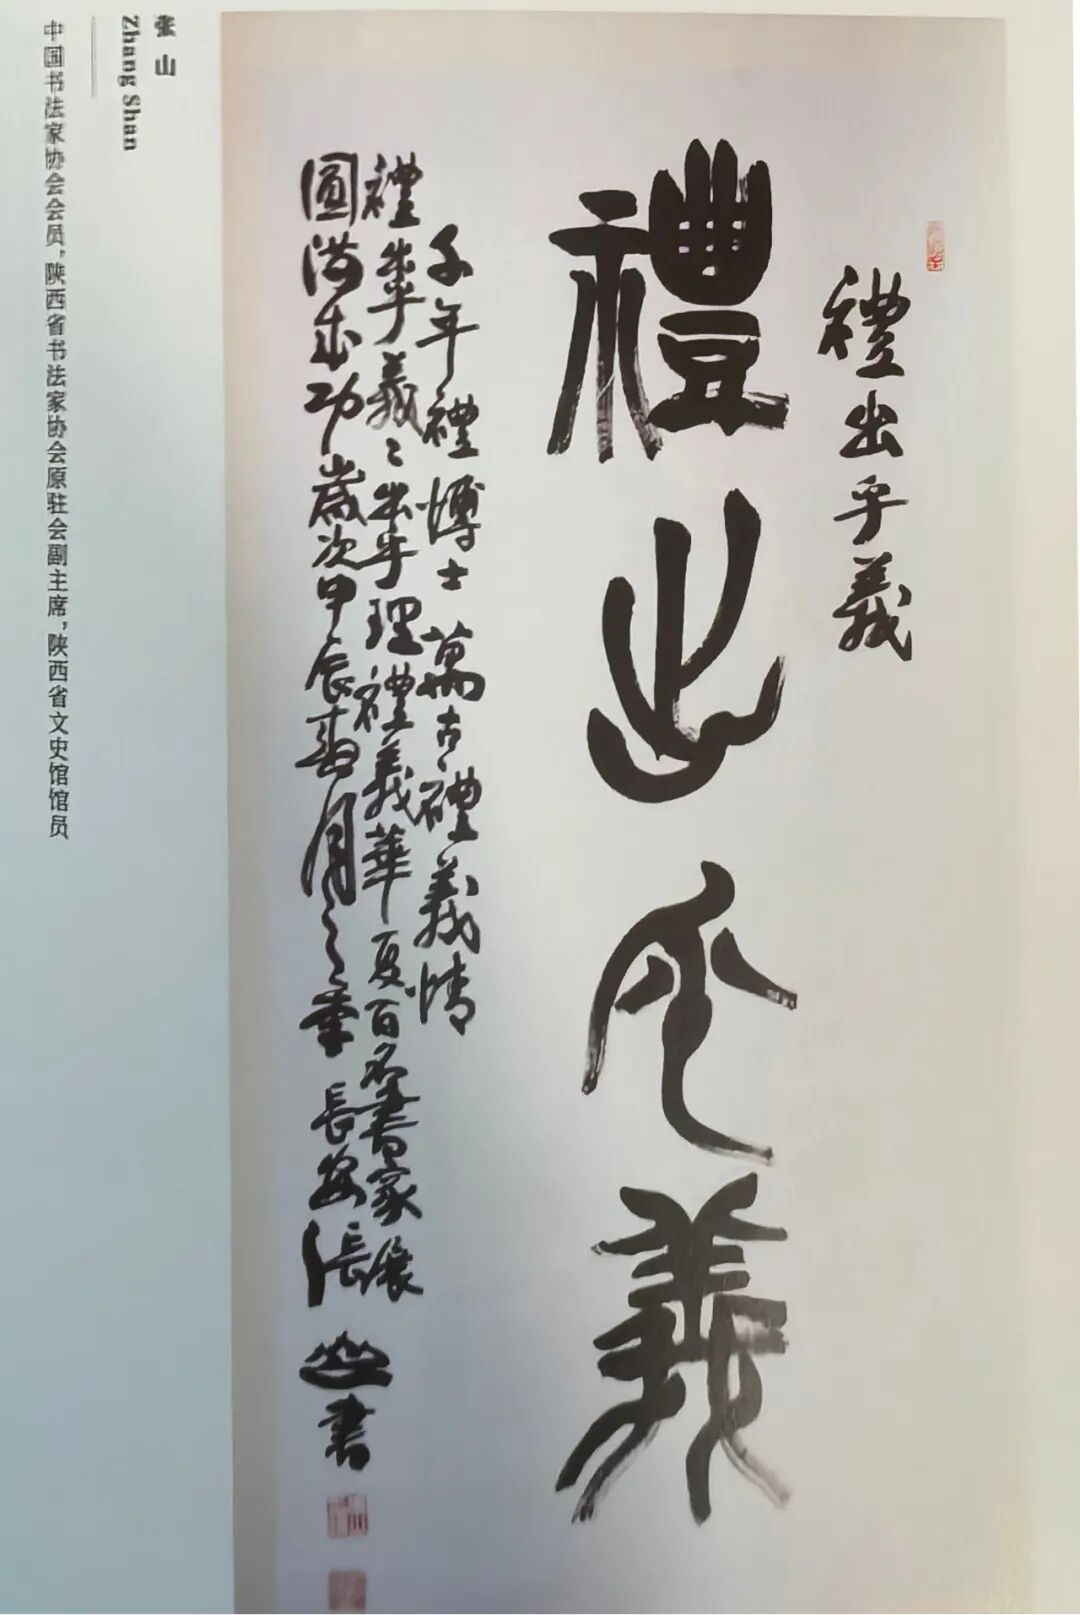 禮出乎義
禮出乎義
千年禮博士萬古禮義情
禮出乎義〻出乎理禮義華夏百名書家展
圓滿成功歲次甲辰春月之 長安張山書
张山
Zhang Shan
中国书法家协会会员，陕西省书法家协会原驻会副主席，陕西省文史馆馆员